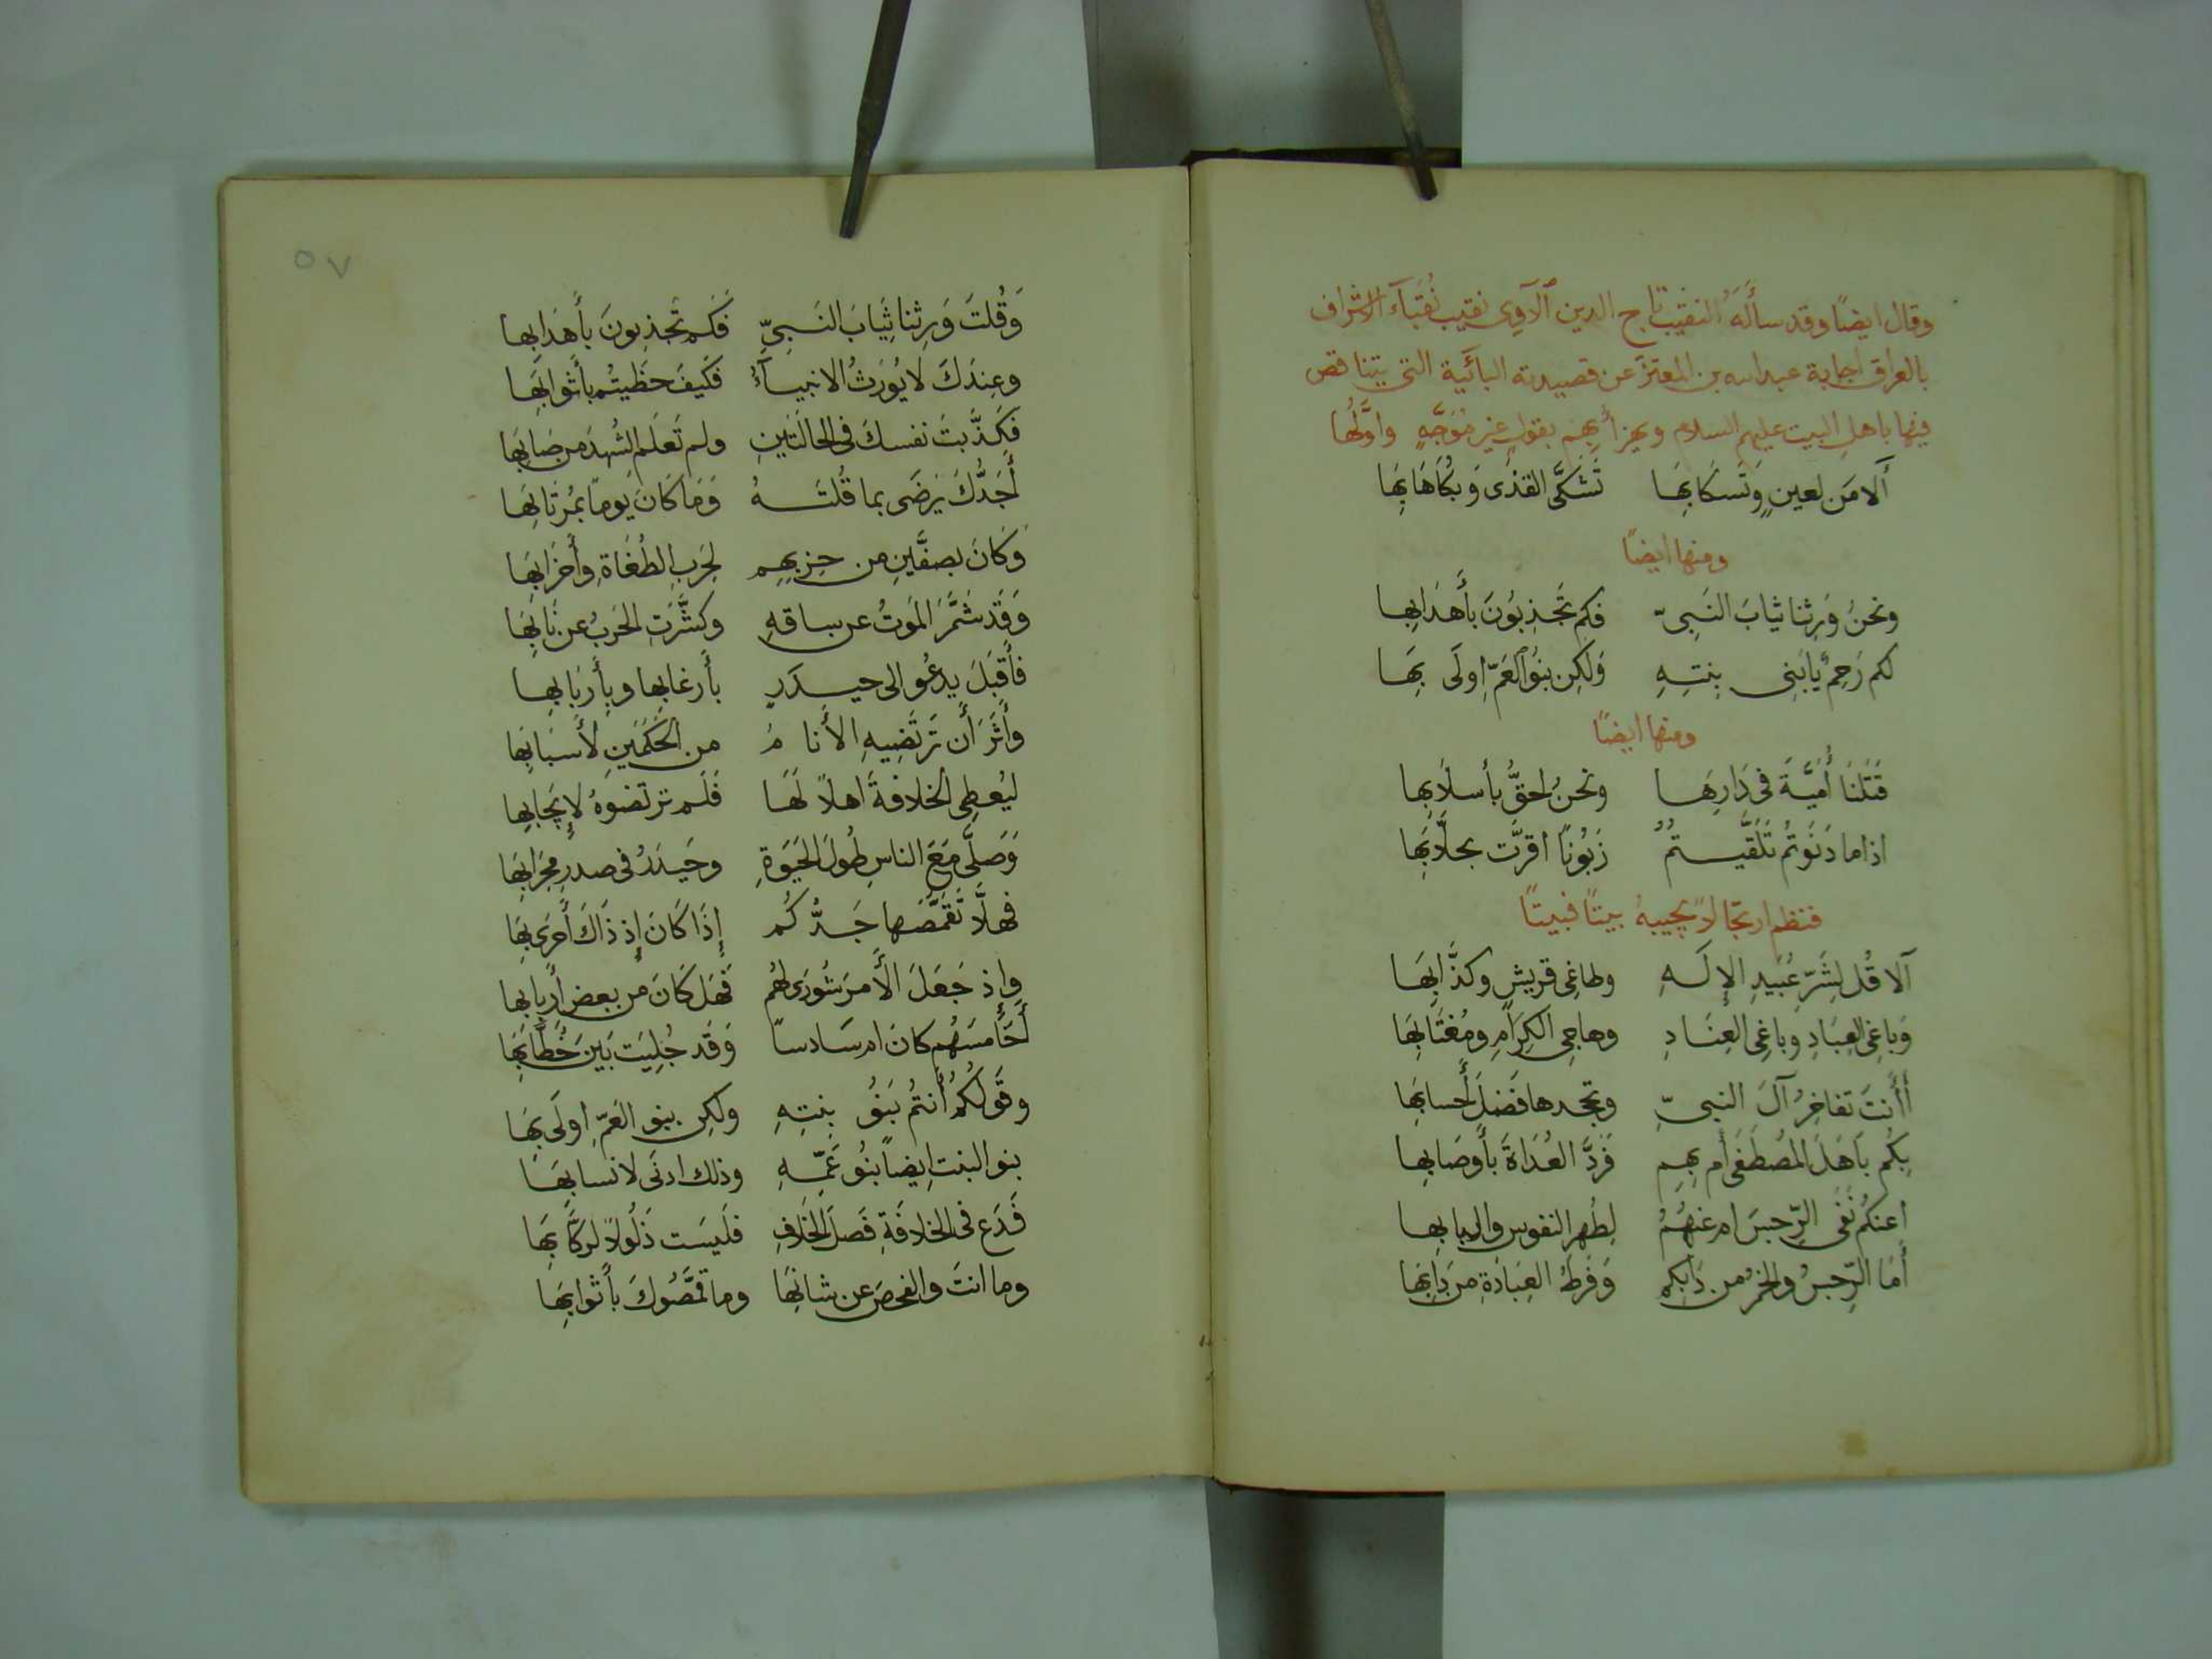 وقال ايضًا وقد سأَلَهُ النقيب تاج الدين الآوِى نقيب نُقَبَآءِ الاشراف
بالعراق اجابة عبد الله بن المعتز عن قصيدته البائَية التى يتناقص
فيها باهل البيت عليهم السلام ويهزأُ بهم بقولٍ غيرِ مُوَجَّهٍ واوَّلُها
أَلا مَن لعينٍ وَتَسكَابِهَا تَشَكَّى القذَى وَبُكَاهَا بِهَا
ومنها ايضًا
ونحنُ وَرِثنا ثيابَ النَبِىّ فكم تَجذِبُونَ بأَهدَابِها
لكم رَحِمٌ يا بَنِى بِنتِهِ وَلكِن بنُو العَمّ اِولَى بِهَا
ومنها ايضًا
قَتَلنَا أُمَيَّةَ فى دَارِهَا ونحنُ احَقُّ بأسلَابِها
اذا ما دَنَوتُم تَلَقَّيتُمُ زَبُونًا اقرَّت بحلَّابِهَا
فنظم ارتجالاً يجيبهُ بيتًا فبيتًا
ألا قُل لِشَرِّ عَبِيدِ الإِلَهِ وطاغِى قريشٍ وكذَّابِهَا
وَباغِى العِبَادِ وباغِى العِنَادِ وهاجِى الكِرَامِ ومُغتَابِهَا
أَأَنتَ تفاخِرُ آلَ النبىِّ وتجحدها فَضلَ أَحسابِهَا
بِكُم بَاهَلَ المُصطَفَى أَم بِهِم فَرَدَّ العُدَاةَ بأَوصَابِها
اَعنكُم نَفَى الرِّجسَ ام عَنهُمُ لِطُهرِ النفوس والبابِها
أَمَا الرِّجسُ والخَمرُ من دَابِكم وَفَرطُ العِبَادَةِ مِن دَابِهَا
٥٧
وَقُلتَ وَرِثنا ثِيَابَ النَبىِّ فَكَم تَجذِبونَ بأَهدَابِها
وعِندَكَ لا يُورَثُ الانبيآءُ فَكَيفَ حَظِيتُم بأَثوابِهَا
فَكَذَّبتَ نفسكَ فى الحالَتَينِ ولم تَعلَمِ الشُهدَ من صَابِهَا
أَجَدُّكَ يَرضَى بما قُلتَهُ وَمَا كَانَ يومًا بمُرتَابِهَا
وَكَانَ بصِفَّينِ من حِزبِهِم لِحَربِ الطُغَاةِ وأَحزَابِهَا
وَقَد شَمَّرَ المَوتُ عن ساقهِ وكشَّرَتِ الحَربُ عن نَابِهَا
فأَقبَلَ يدعُو الى حيدَرٍ بأَرغابِها وبِأَربَابِها
وأَثَرَ أَن تَرتَضِيهِ الأَنامُ من الحَكَمَينِ لأَسبَابِهَا
ليُعطِى الخلافةَ اهلاً لَهَا فَلَم يرتضوهُ لإِيجَابِها
وَصَلَّى مَعَ الناسِ طُولَ الحَيَوةِ وحَيدَرُ فى صدرِ محرَابِهَا
فهلاَّ تَقَمَّصَها جَدُّكُم إِذَا كَانَ إِذ ذَاكَ أَحرَى بِهَا
وإِذ جَعَلَ الأَمرَ شُورَى لهُم فَهَل كَانَ من بعض أَربابها
أَخَامسَهُم كانَ ام سَادسًا وَقَد جُلِيَت بَينَ خُطَّابِهَا
وقَولُكُمُ أَنتُم بَنُو بِنتِهِ ولكِن بنو العَمّ اولَى بِهَا
بنو البنت ايضًا بنُو عَمِّهِ وذلك ادنَى لانسابِهَا
فَدَع فى الخلافَةِ فَصلَ الخِلافِ فلَيسَت ذَلُولاً لرَكَّابِهَا
وما انتَ والفحصَ عن شانِهَا وما قمَّصُوكَ بأَثوابِهَا